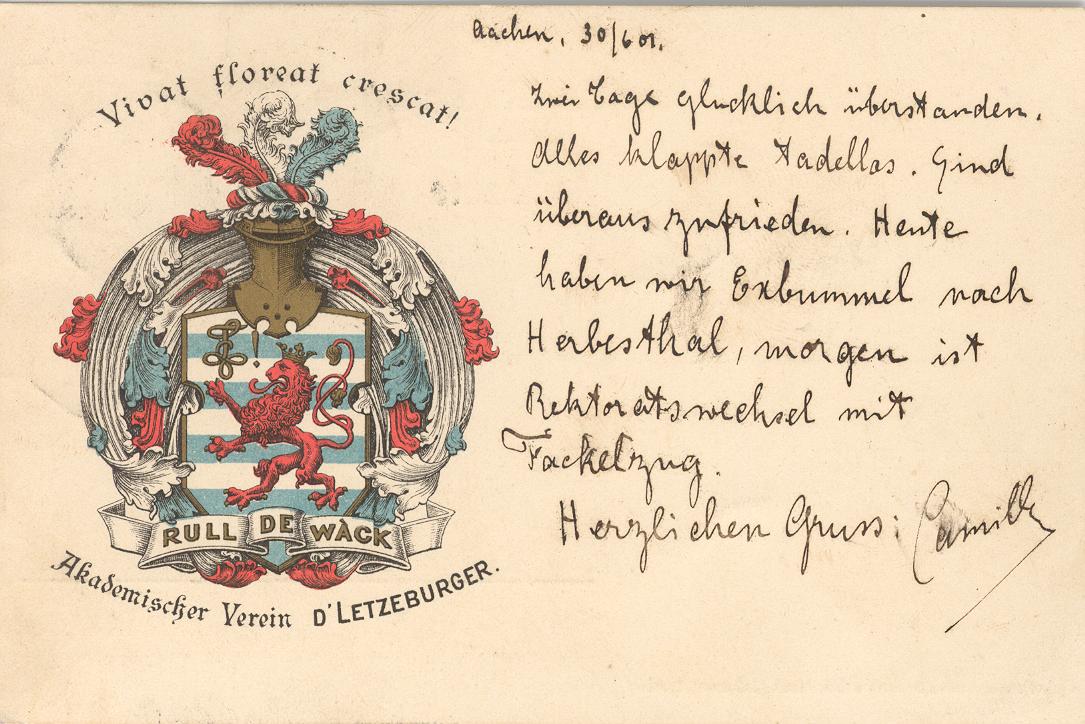 Vivat floreat crescat!
RULL DE WÀCK
Akademischer Verein D'LETZEBURGER.
Aachen, 30/6 01.
Zwei Tage glucklich überstanden.
Alles klappte tadellos. Sind
überaus zufrieden. Heute
haben wir Exbummel nach
Herbesthal, morgen ist
Rektoratswechsel mit
Fackelzug.
Herzlichen Gruss: Camille